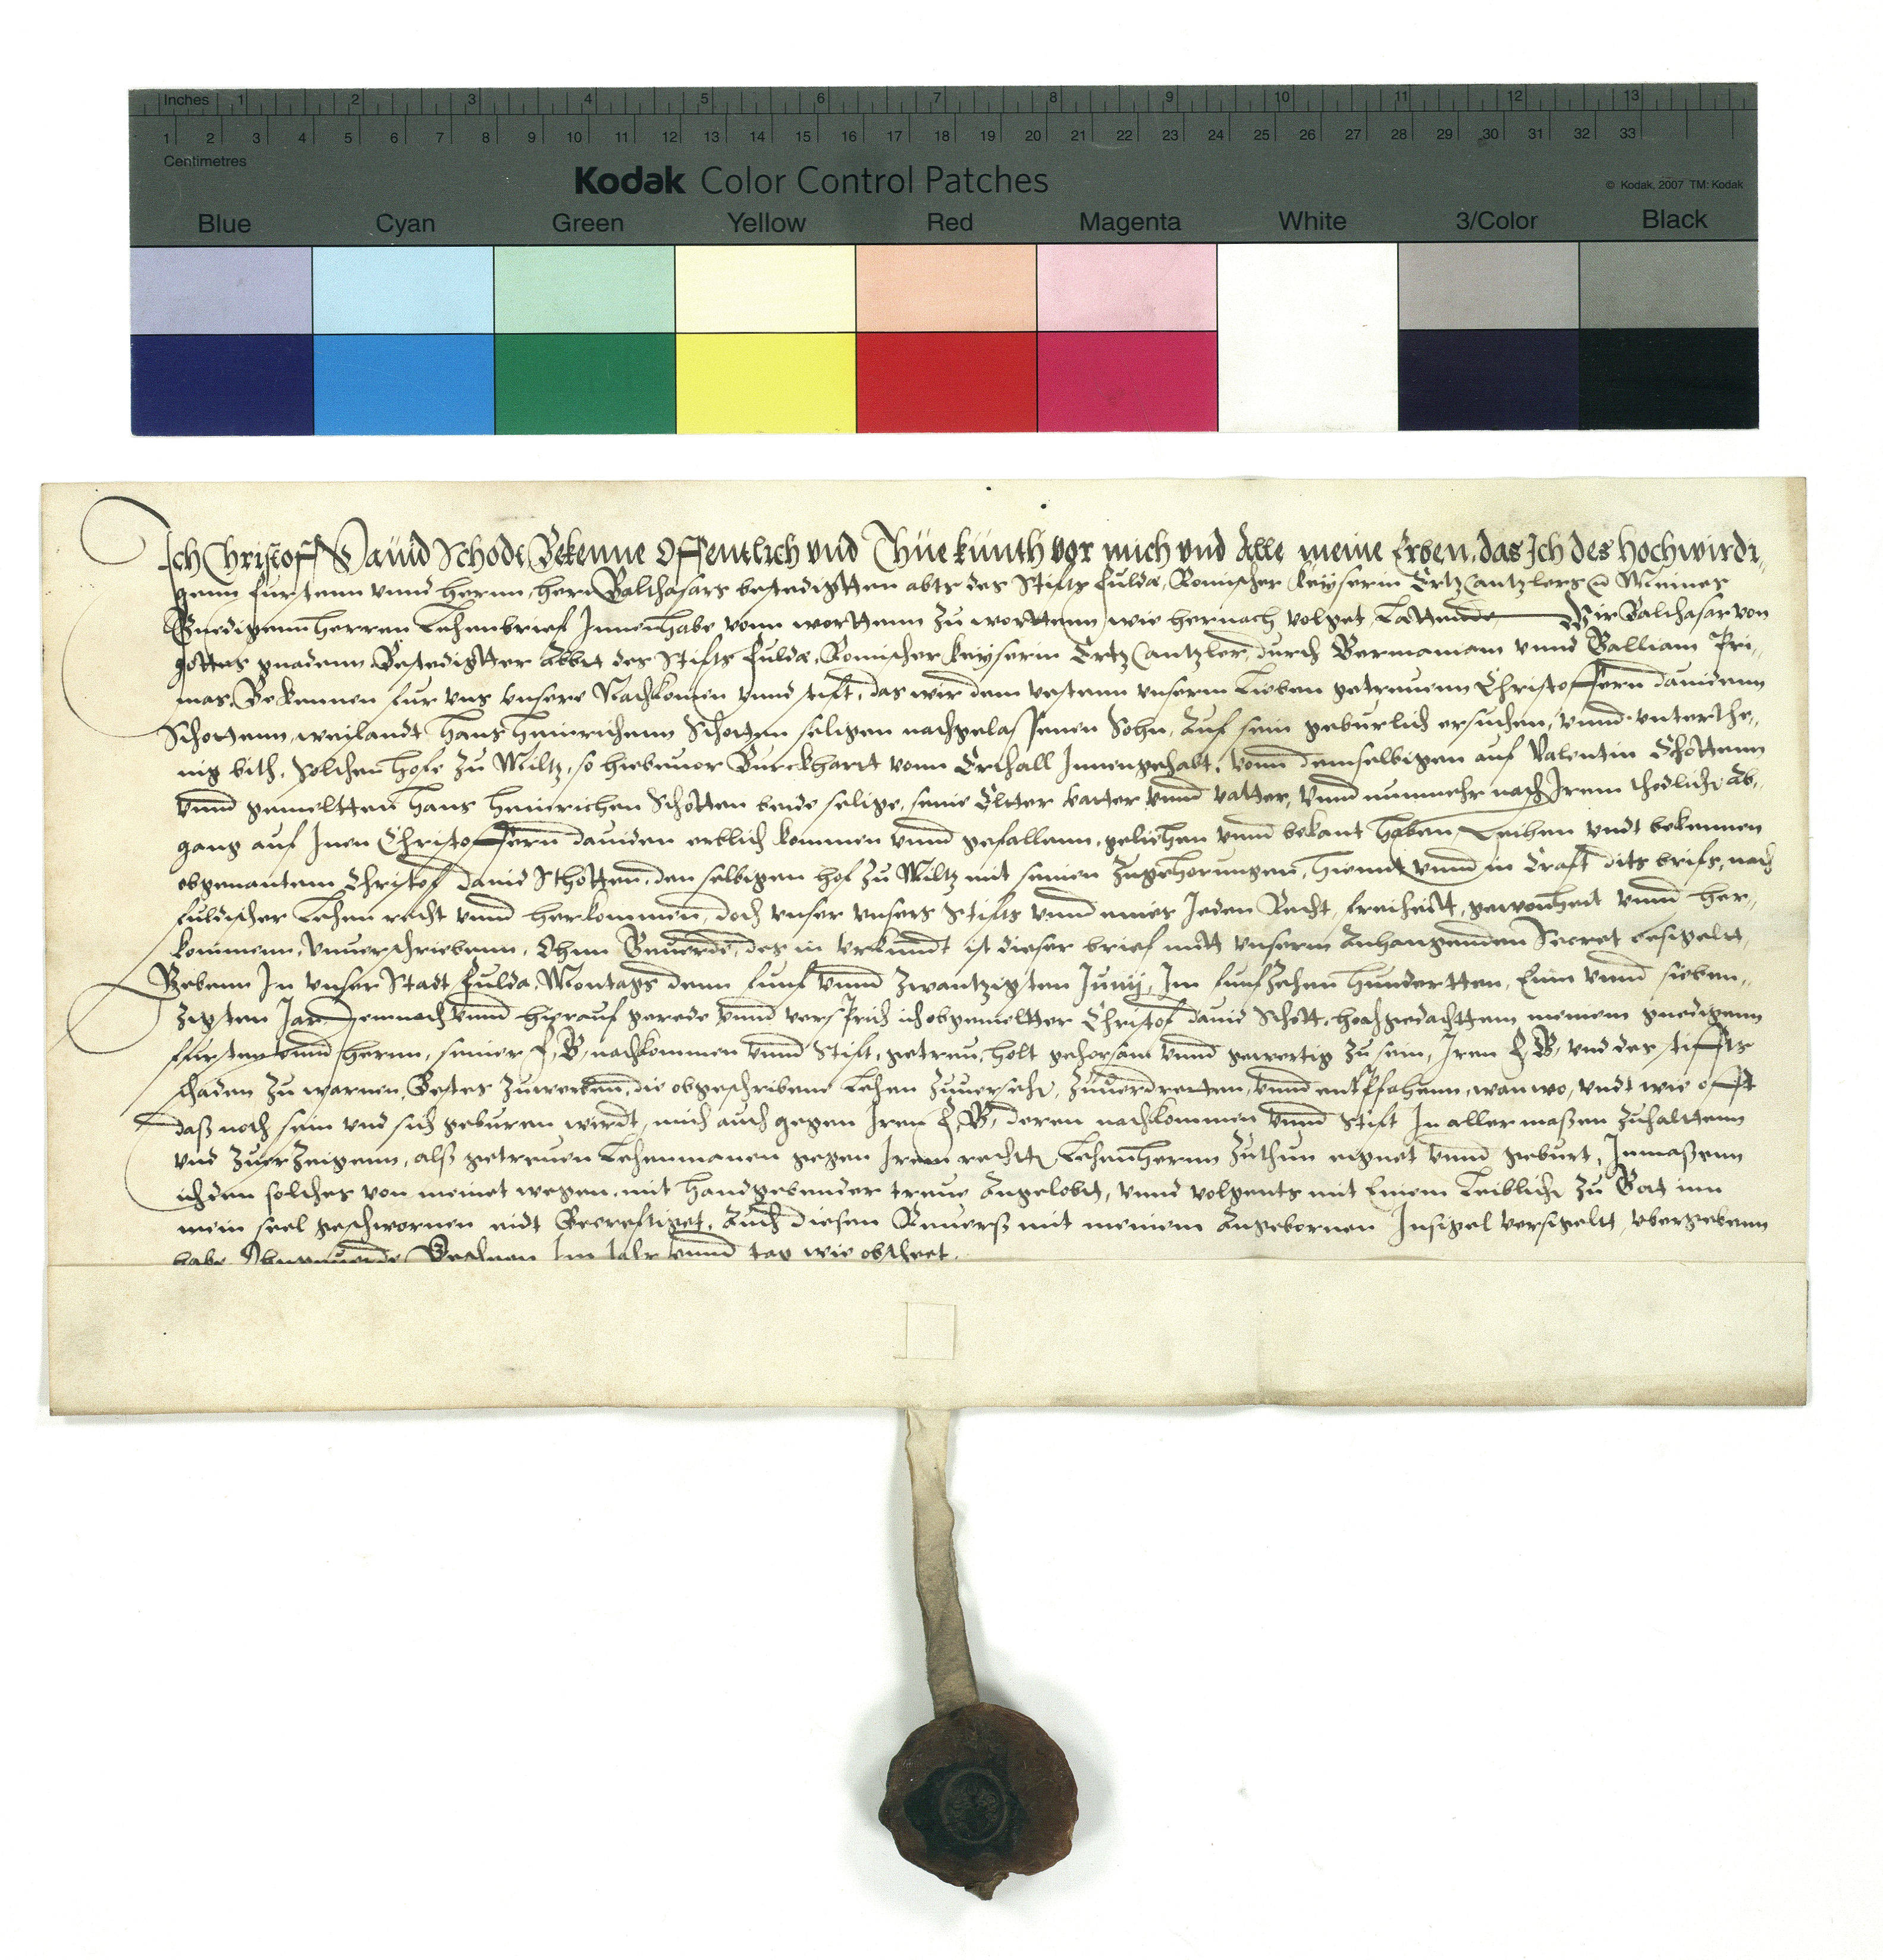 Inches 1 2 3 4 5 6 7 8 9 10 11 12 13
1 2 3 4 5 6 7 8 9 10 11 12 13 14 15 16 17 18 19 20 21 22 23 24 25 26 27 28 29 30 31 32 33
Centimetres
Kodak Color Control Patches
© Kodak, 2007 TM: Kodak
Blue Cyan Green Yellow Red Magenta White 3/Color Black
Ich Christoff Dauid Schodt Bekenne Offentlich vnd Thue kunth vor mich vnd Alle meine Erben, das Ich des hochwirdi,,
genn furstenn vnnd hernn, hern Balthasars bestedigtten abts des Stiffts fulda, Romischer keyserin Ertz Cantzlers Meines
Gnedigenn herren Lehenbrief Innenhabe vonn worttenn zu worttenn wie hernach volget Lauttende Wir Balthasar von
gottes gnadenn Bestedigtter Abbt des Stiffts fulda, Romischer keyserin Ertz Cantzler, durch Germaniam vnnd Galliam Pri,,
mas, Bekennen fur vns vnsere Nachkomen vnnd stift, das wir dem vestenn vnserm Lieben getreuenn Christoffern dauidenn
Schottenn, weilandt Hans Heinrichenn Schotten seligen nachgelassenen Sohn, Auf sein geburlich ersuchen, vnnd vnterthe,,
nig bith, solchen hofe zu Miltz, so hiebeuor Burckhardt vonn Erthall Innengehabt, vonn demselbigen auf Valentin Schottenn
vnnd gemeltten Hans Heinrichen Schotten beide selige, seine Elter vatter vnnd vatter, vnnd nunmehr nach Irem thodlich Ab,,
gang auf Inen Christoffern dauiden erblich kommen vnnd gefallenn, geliehen vnnd bekant haben, Leihen vndt bekennen
obgenantem Christof dauid Schotten, den selbigen hof zu Miltz mit seinen Zugehorungen, hiemit vnnd in Craft dits briefs, nach
fuldischer Lehen recht vnnd herkommen, doch vnser vnsers Stifts vnnd eines Jeden Recht, freiheitt, gewonheit vnnd her,,
kommenn, vnuerschriebenn, Ohnn Geuerde, des in vrkundt ist dieser brief mitt vnserm Anhangenden Secret besigeltt,
Gebenn In vnser Stadt fulda, Montags denn funf vnnd Zwantzigsten Junij, Im funfzehen hundertten, Einn vnnd sieben,,
zigsten Jar, Demnach vnnd hierauf gerede vnnd versprich ich obgemeltter Christof dauid Schott, hochgedachttem meinem gnedigenn
fursten vnnd hernn, seiner f, G, nachkommen vnnd Stift, getreu, holt gehorsam vnnd gewertig zu sein, Iren f, G, vnd des stiffts
schaden zu warnen, Bestes Zuwerben, die obgeschribene Lehen Zuuersteh, Zuuerdienen, vnnd entpfahenn, wan wo, vndt wie offt
daß noth sein vnd sich geburen wirdt, mich auch gegen Iren f, G, deren nachkommen vnnd Stift In aller maßen Zuhalttenn
vnd Zuerzeigenn, alß getreuen Lehenmanen gegen Iren rechtt Lehenhernn Zuthun eignet vnnd geburt, Inmaßenn
ich den solches von meinet wegen, mit Handgebender treue Angelobet, vnnd volgents mit Einem Leiblich Zu Got inn
mein seel geschwornen eidt Becreftiget, Auch diesen Reuerß mit meinem Angebornen Insigel versigeltt, vbergebenn
habe, Ohngeuerde Geschehen Im Jahr vnnd tag wie obsthet.